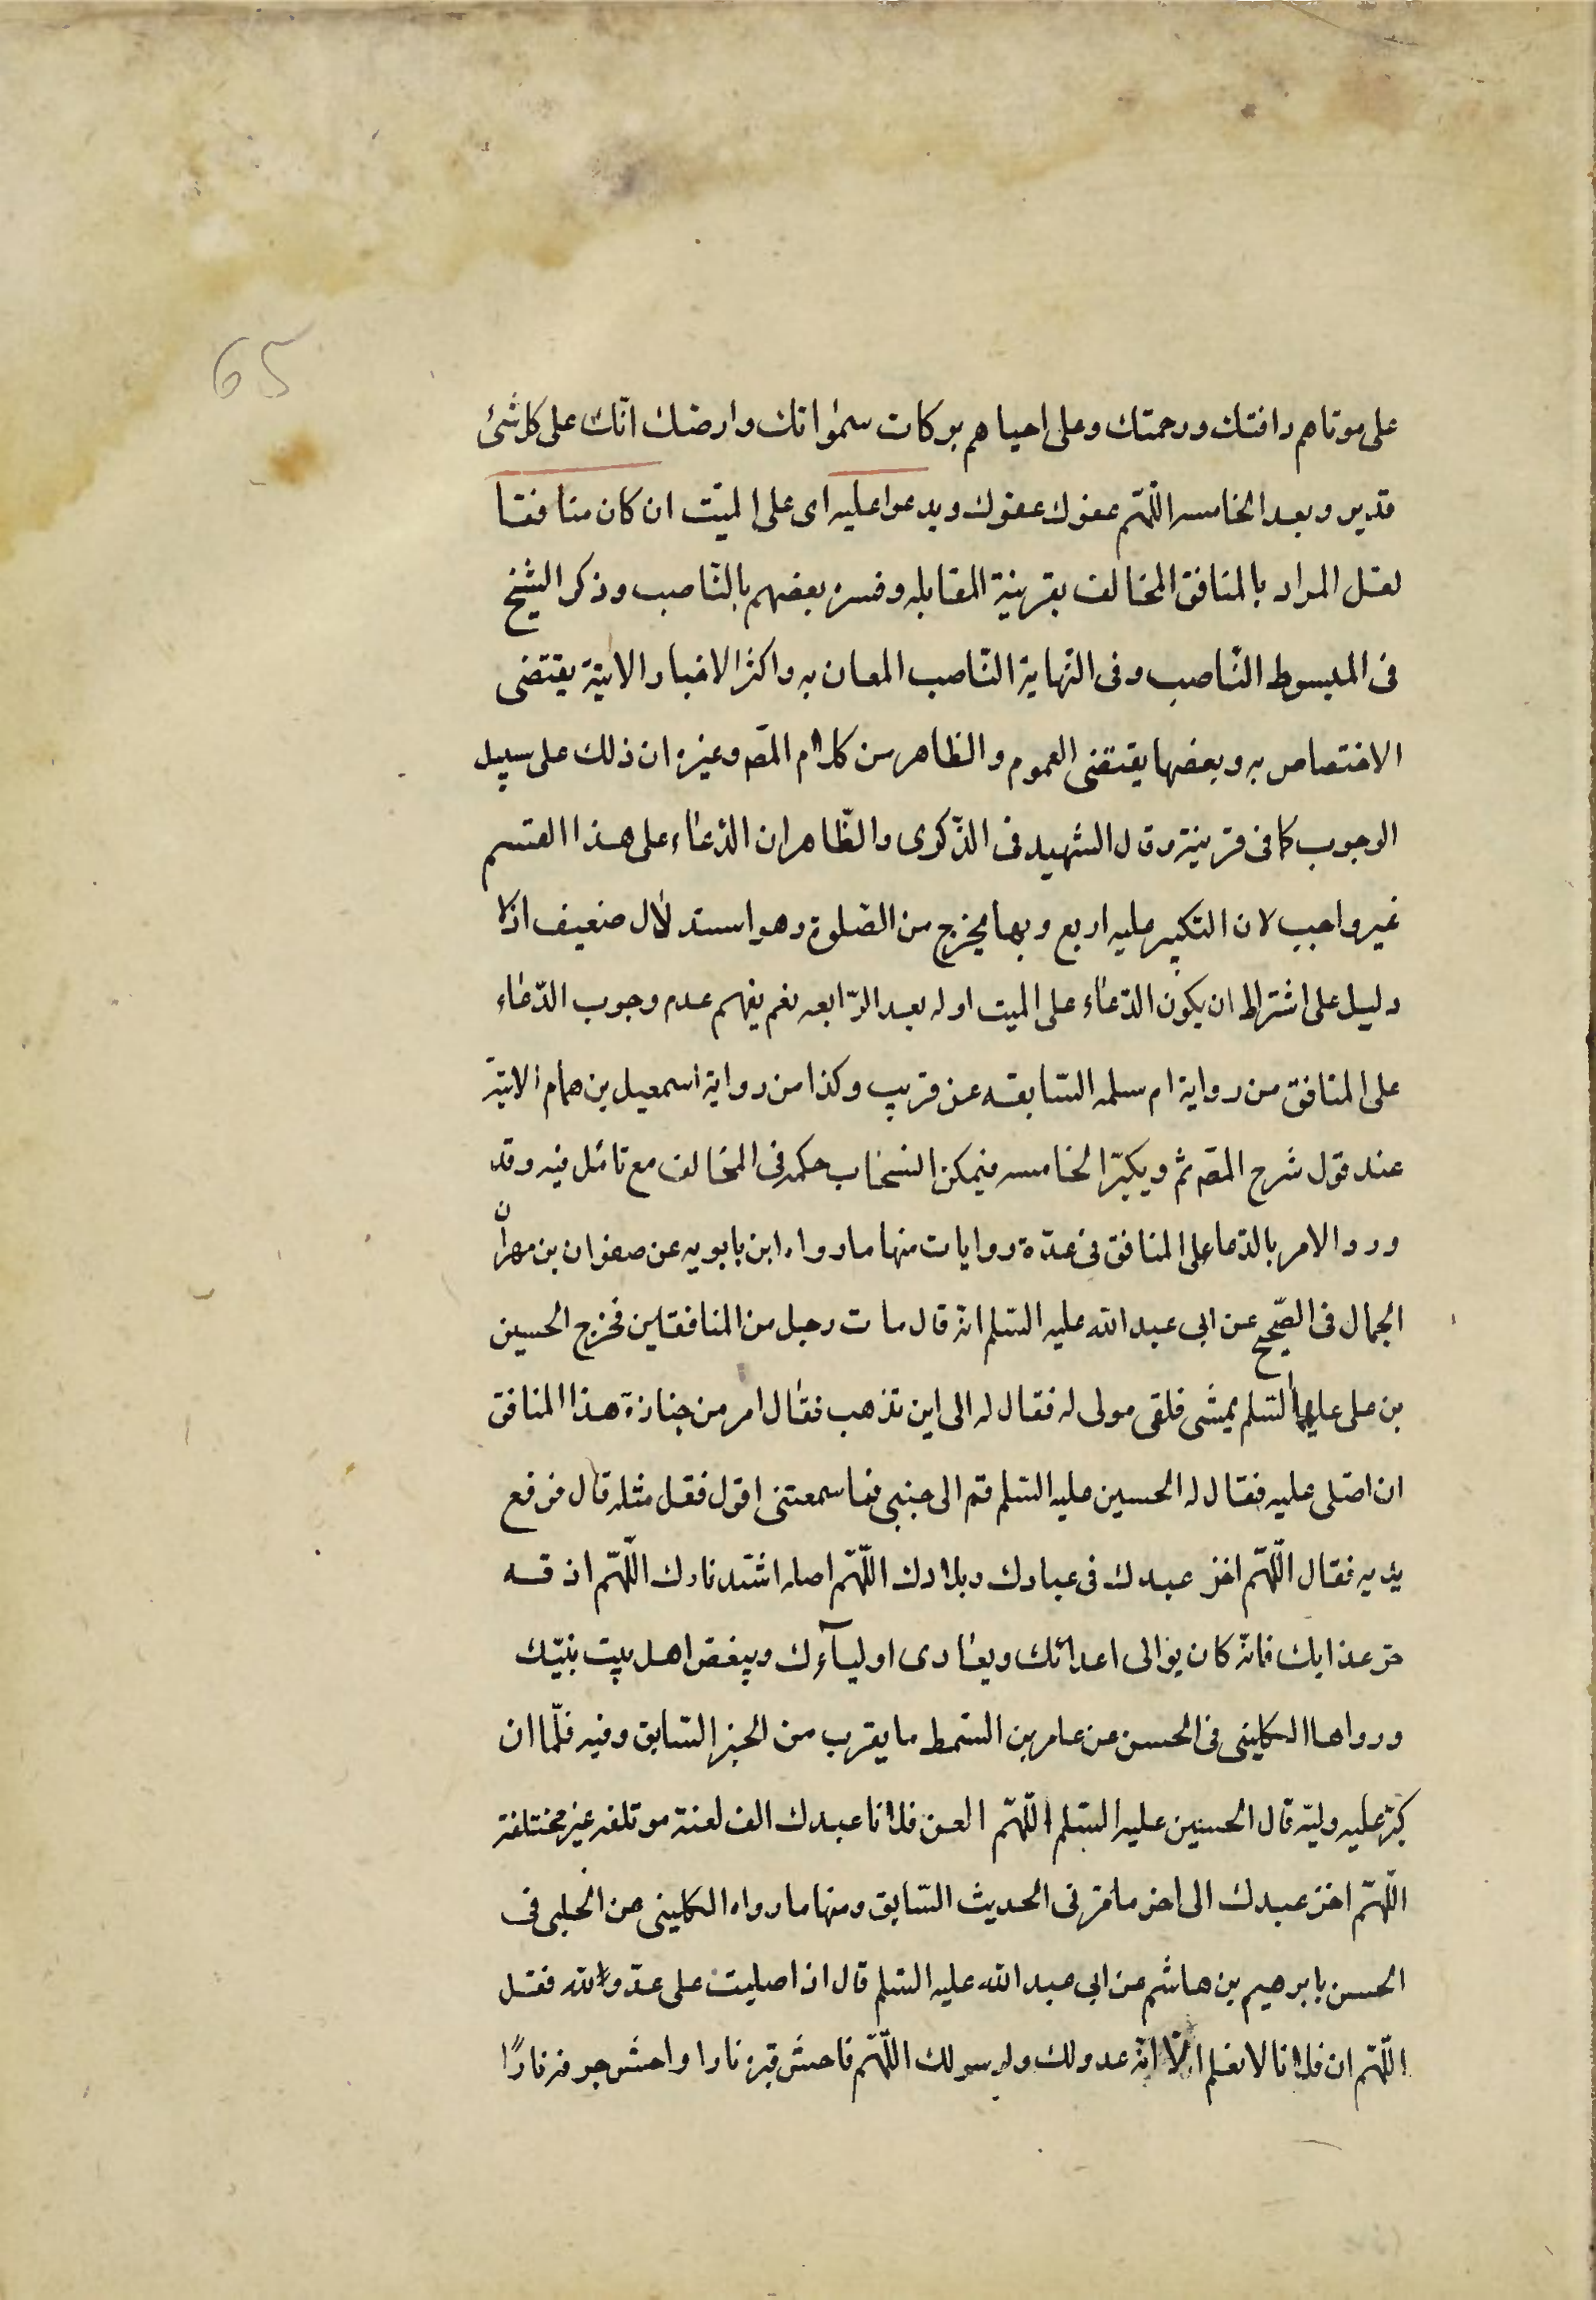 65
على موتاهم رافتك ورحمتك وعلى احياهم بركات سمواتك وارضك انّك على كل شئ
قدير وبعد الخامسه اللّهمّ عفوك عفوك ويدعوا عليه اى على الميّت ان كان منافقا
لعل المراد بالمنافق المخالف بقرينة المقابله وفسره بعضهم بالنّاصب وذكر الشيخ
فى المبسوط النّاصب وفى النّهاية النّاصب المعلن به واكثر الاخبار الاتية يقتضى
الاختصاص به وبعضها يقتضى العموم والظاهر من كلام المصّ وغيره ان ذلك على سبيل
الوجوب كما فى قرينة وقال الشهيد فى الذّكرى والظّاهر ان الدّعاء على هذا القسم
غير واجب لان التكبير عليه اربع وبها يخرج من الصّلوة وهو استدلال ضعيف اذ لا
دليل على اشتراط ان يكون الدّعاء على الميت اوله بعد الرّابعه نعم يفهم عدم وجوب الدّعاء
على المنافق من رواية ام سلمه السّابقه عن قريب وكذا من رواية اسمعيل بن همام الاتية
عند قول شرح المصّ ثم ويكبّر الخامسه فيمكن انسحاب حكمه فى المخالف مع تامّل فيه وقد
ورد الامر بالدّعا على المنافق فى عدّة روايات منها ما رواه ابن بابويه عن صفوان بن مهران
الجمال فى الصّحيح عن ابى عبد الله عليه السّلم انّه قال مات رجل من المنافقين فخرج الحسين
بن على عليهما السّلم يمشى فلقى مولى له فقال له الى اين تذهب فقال افر من جنازة هذا المنافق
ان اصلّى عليه فقال له الحسين عليه السّلم قم الى جنبى فما سمعتنى اقول فقل مثله قال فرفع
يديه فقال اللّهمّ اخز عبدك فى عبادك وبلادك اللّهمّ اصله اشدّ نارك اللّهمّ اذقه
حرّ عذابك فانّه كان يوالى اعدائك ويعادى اوليآءك ويبغض اهل بيت نبيّك
ورواها الكلينى فى الحسن عن عامر بن السّمط ما يقرب من الخبر السّابق وفيه فلمّا ان
كبّر عليه وليّه قال الحسين عليه السّلم اللّهمّ العن فلانا عبدك الف لعنة موتلفه غير مختلفة
اللّهمّ اخز عبدك الى اخر ما مرّ فى الحديث السّابق ومنها ما رواه الكلينى عن الحلبى فى
الحسن بابرهيم بن هاشم عن ابى عبد الله عليه السّلم قال اذا صليت على عدّو الله فقل
اللّهمّ ان فلانا لا نعلم الّا انّه عدو لك ولرسولك اللّهمّ فاحش قبره نارا واحش جوفه نارًا